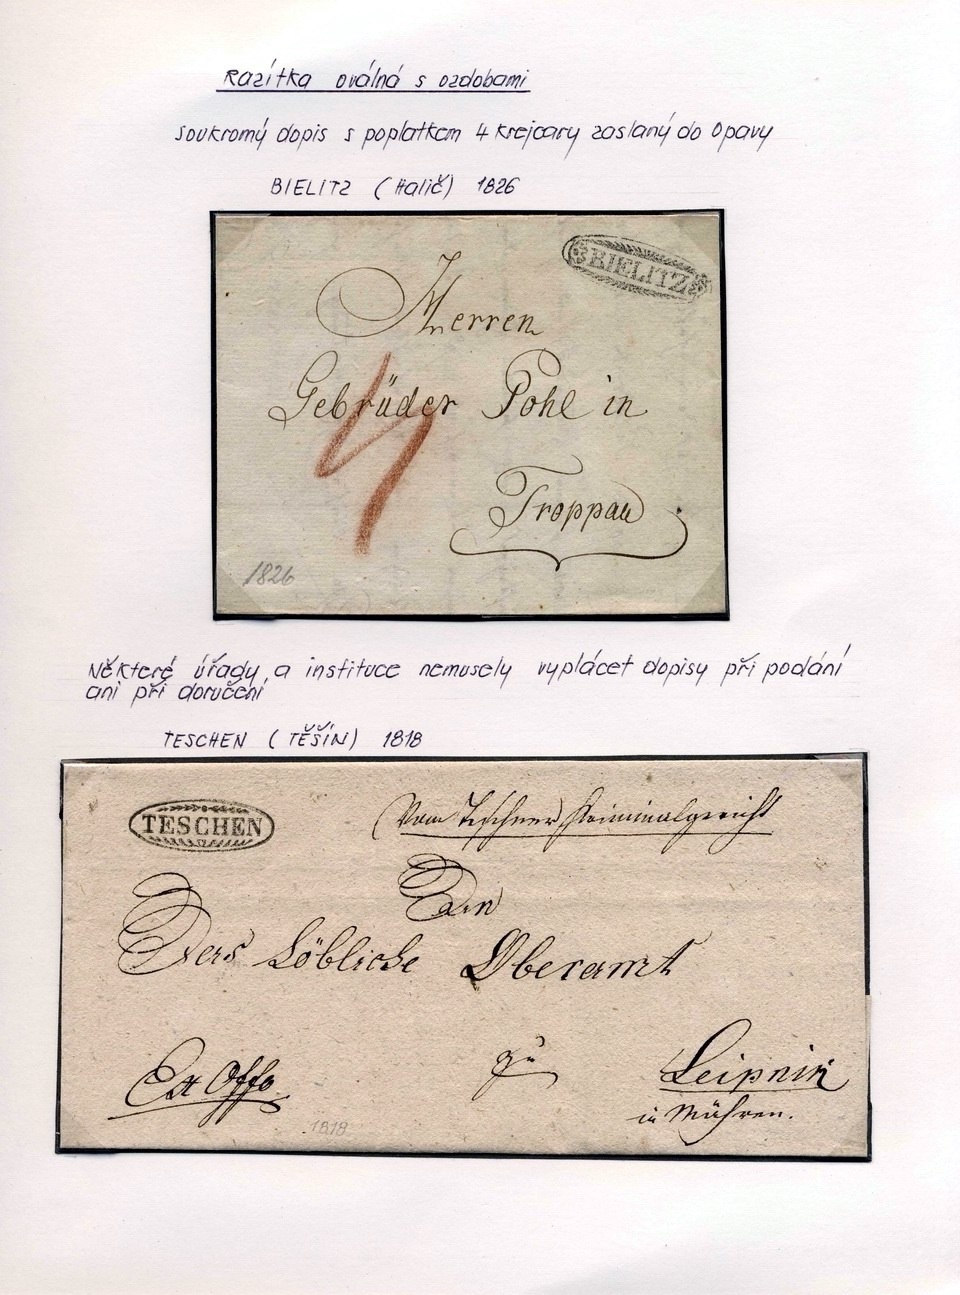 Razítka oválná s ozdobami
soukromý dopis s poplatkem 4 krejcary zaslaný do Opavy
BIELITZ (Halič) 1826
BIELITZ
Herren
Gebrüder Pohl in
4
Troppau
1826
Některé úřady a instituce nemusely vyplácet dopisy při podání
ani při doručení
TESCHEN (TĚŠÍN) 1818
TESCHEN
Vom Teschner Kriminalgericht
An
Das Löbliche Oberamt
Ex Offo
zu
Leipnik
in Mähren.
1818